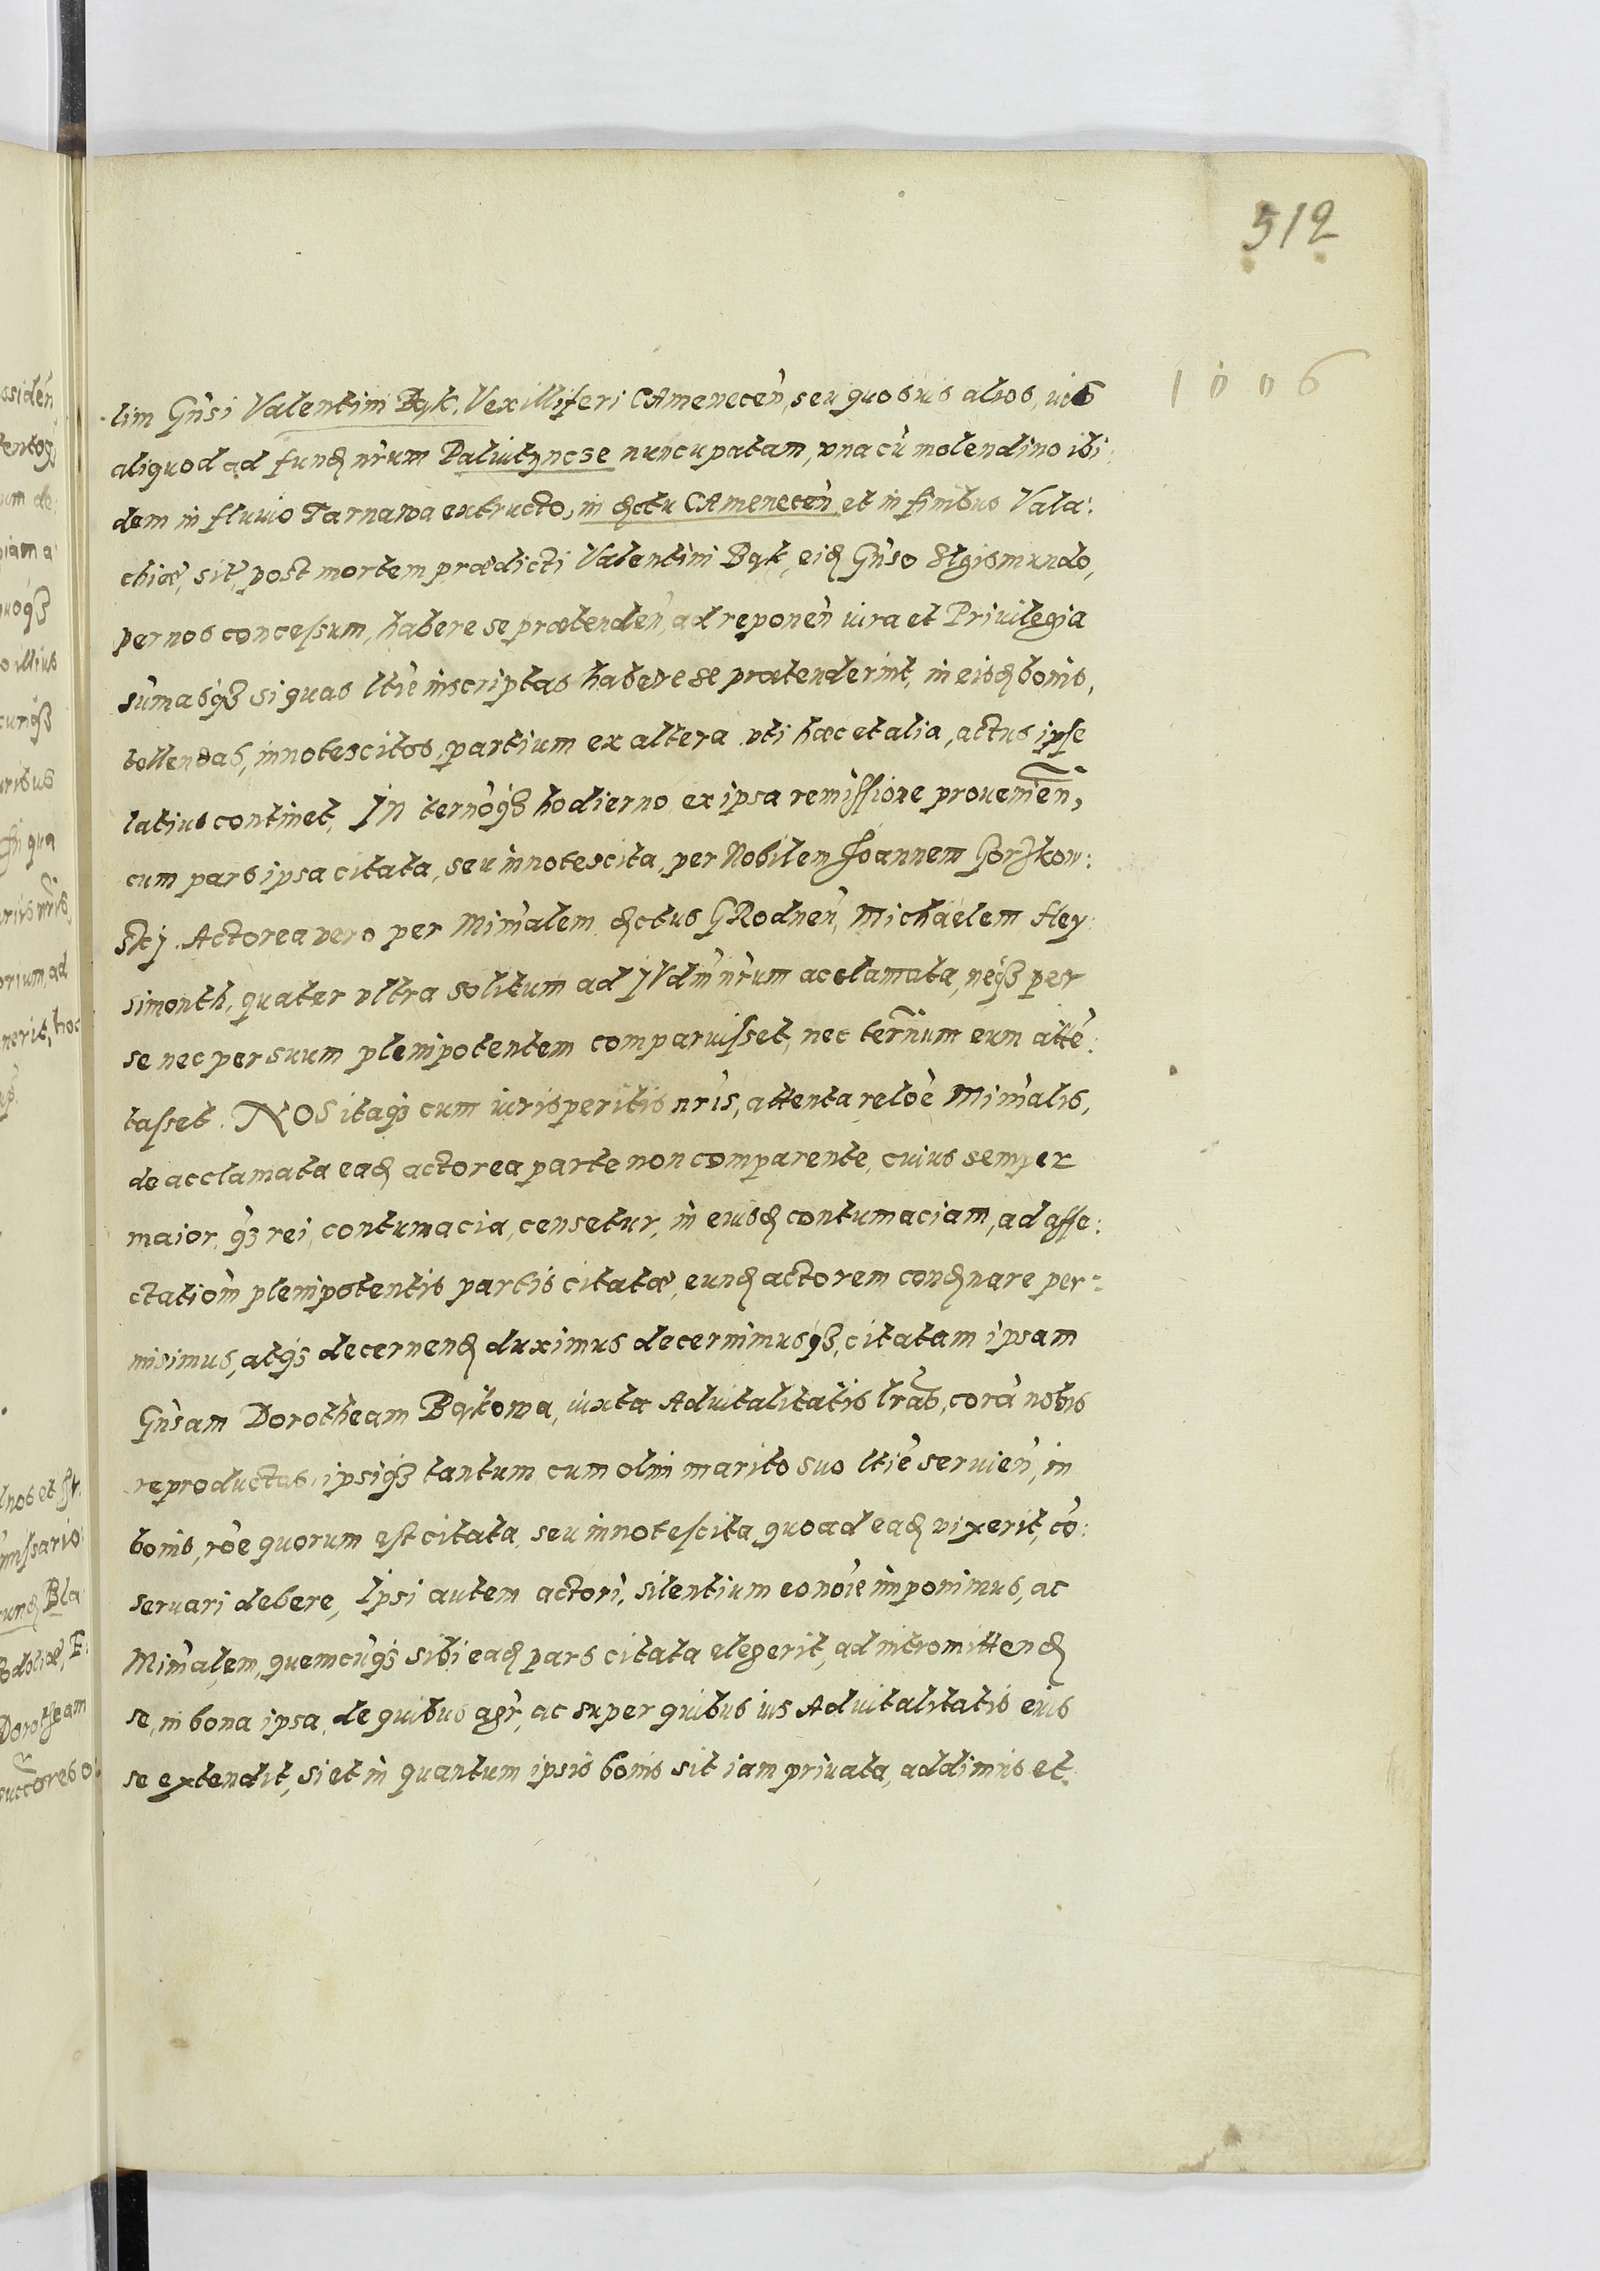 512
1006
lim Gnsi Valentini Bąk, Vexilliferi CAmenecen, seu quosvis alios, ius
aliquod ad fundū nrum Paluitynese nuncupatam, vna cū molendino ibi:
dem in fluuio Tarnawa extructo, in dctu CAmenecen et in finibus Vala:
chiæ, sit, post mortem prædicti Valentini Bąk, eidē Gnso Sigismundo,
per nos concessum, habere se prætenden, ad reponen iura et Priuilegia
sūmasq3 si quas ltie inscriptas habere se prætenderint, in eisdē bonis,
tollendas, innotescitos, partium ex altera. vti hæc et alia, actus ipse
latius continet, In ternoq3 hodierno ex ipsa remissione prouenien,
cum pars ipsa citata, seu innotescita, per Nobilem Joannem Gorskow:
skj. Actorea vero per Minalem dctus GRodnen, Michaelem Hey:
simonth, quater vltra solitum ad JVdm nrum acclamata, neq3 per
se nec per suum plenipotentem comparuisset, nec ternum eum atte:
tasset. NOS itaq3 cum iurisperitis nris, attenta reloe Minalis,
de acclamata eadē actorea parte non comparente, cuius semper
maior, q3 rei, contumacia, censetur, in eiusdē contumaciam, ad affe:
ctatiom plenipotentis partis citatæ, eundē actorem condēnare per=
misimus, atq3 decernendū duximus decernimusq3, citatam ipsam
Gnsam Dorotheam Bąkowa, iuxta Aduitalitatis lras, corā nobis
reproductas, ipsiq3 tantum cum olim marito suo ltie seruien, in
bonis, roe quorum est citata, seu innotescita, quoad eadē vixerit, cō:
seruari debere, Ipsi autem actori, silentium eo noie imponimus, ac
Minalem, quemcūq3 sibi eadē pars citata elegerit, ad intromittendū
se, in bona ipsa, de quibus agr, ac super quibus ius Aduitalitatis eius
se extendit, si et in quantum ipsis bonis sit iam priuata, addimus et